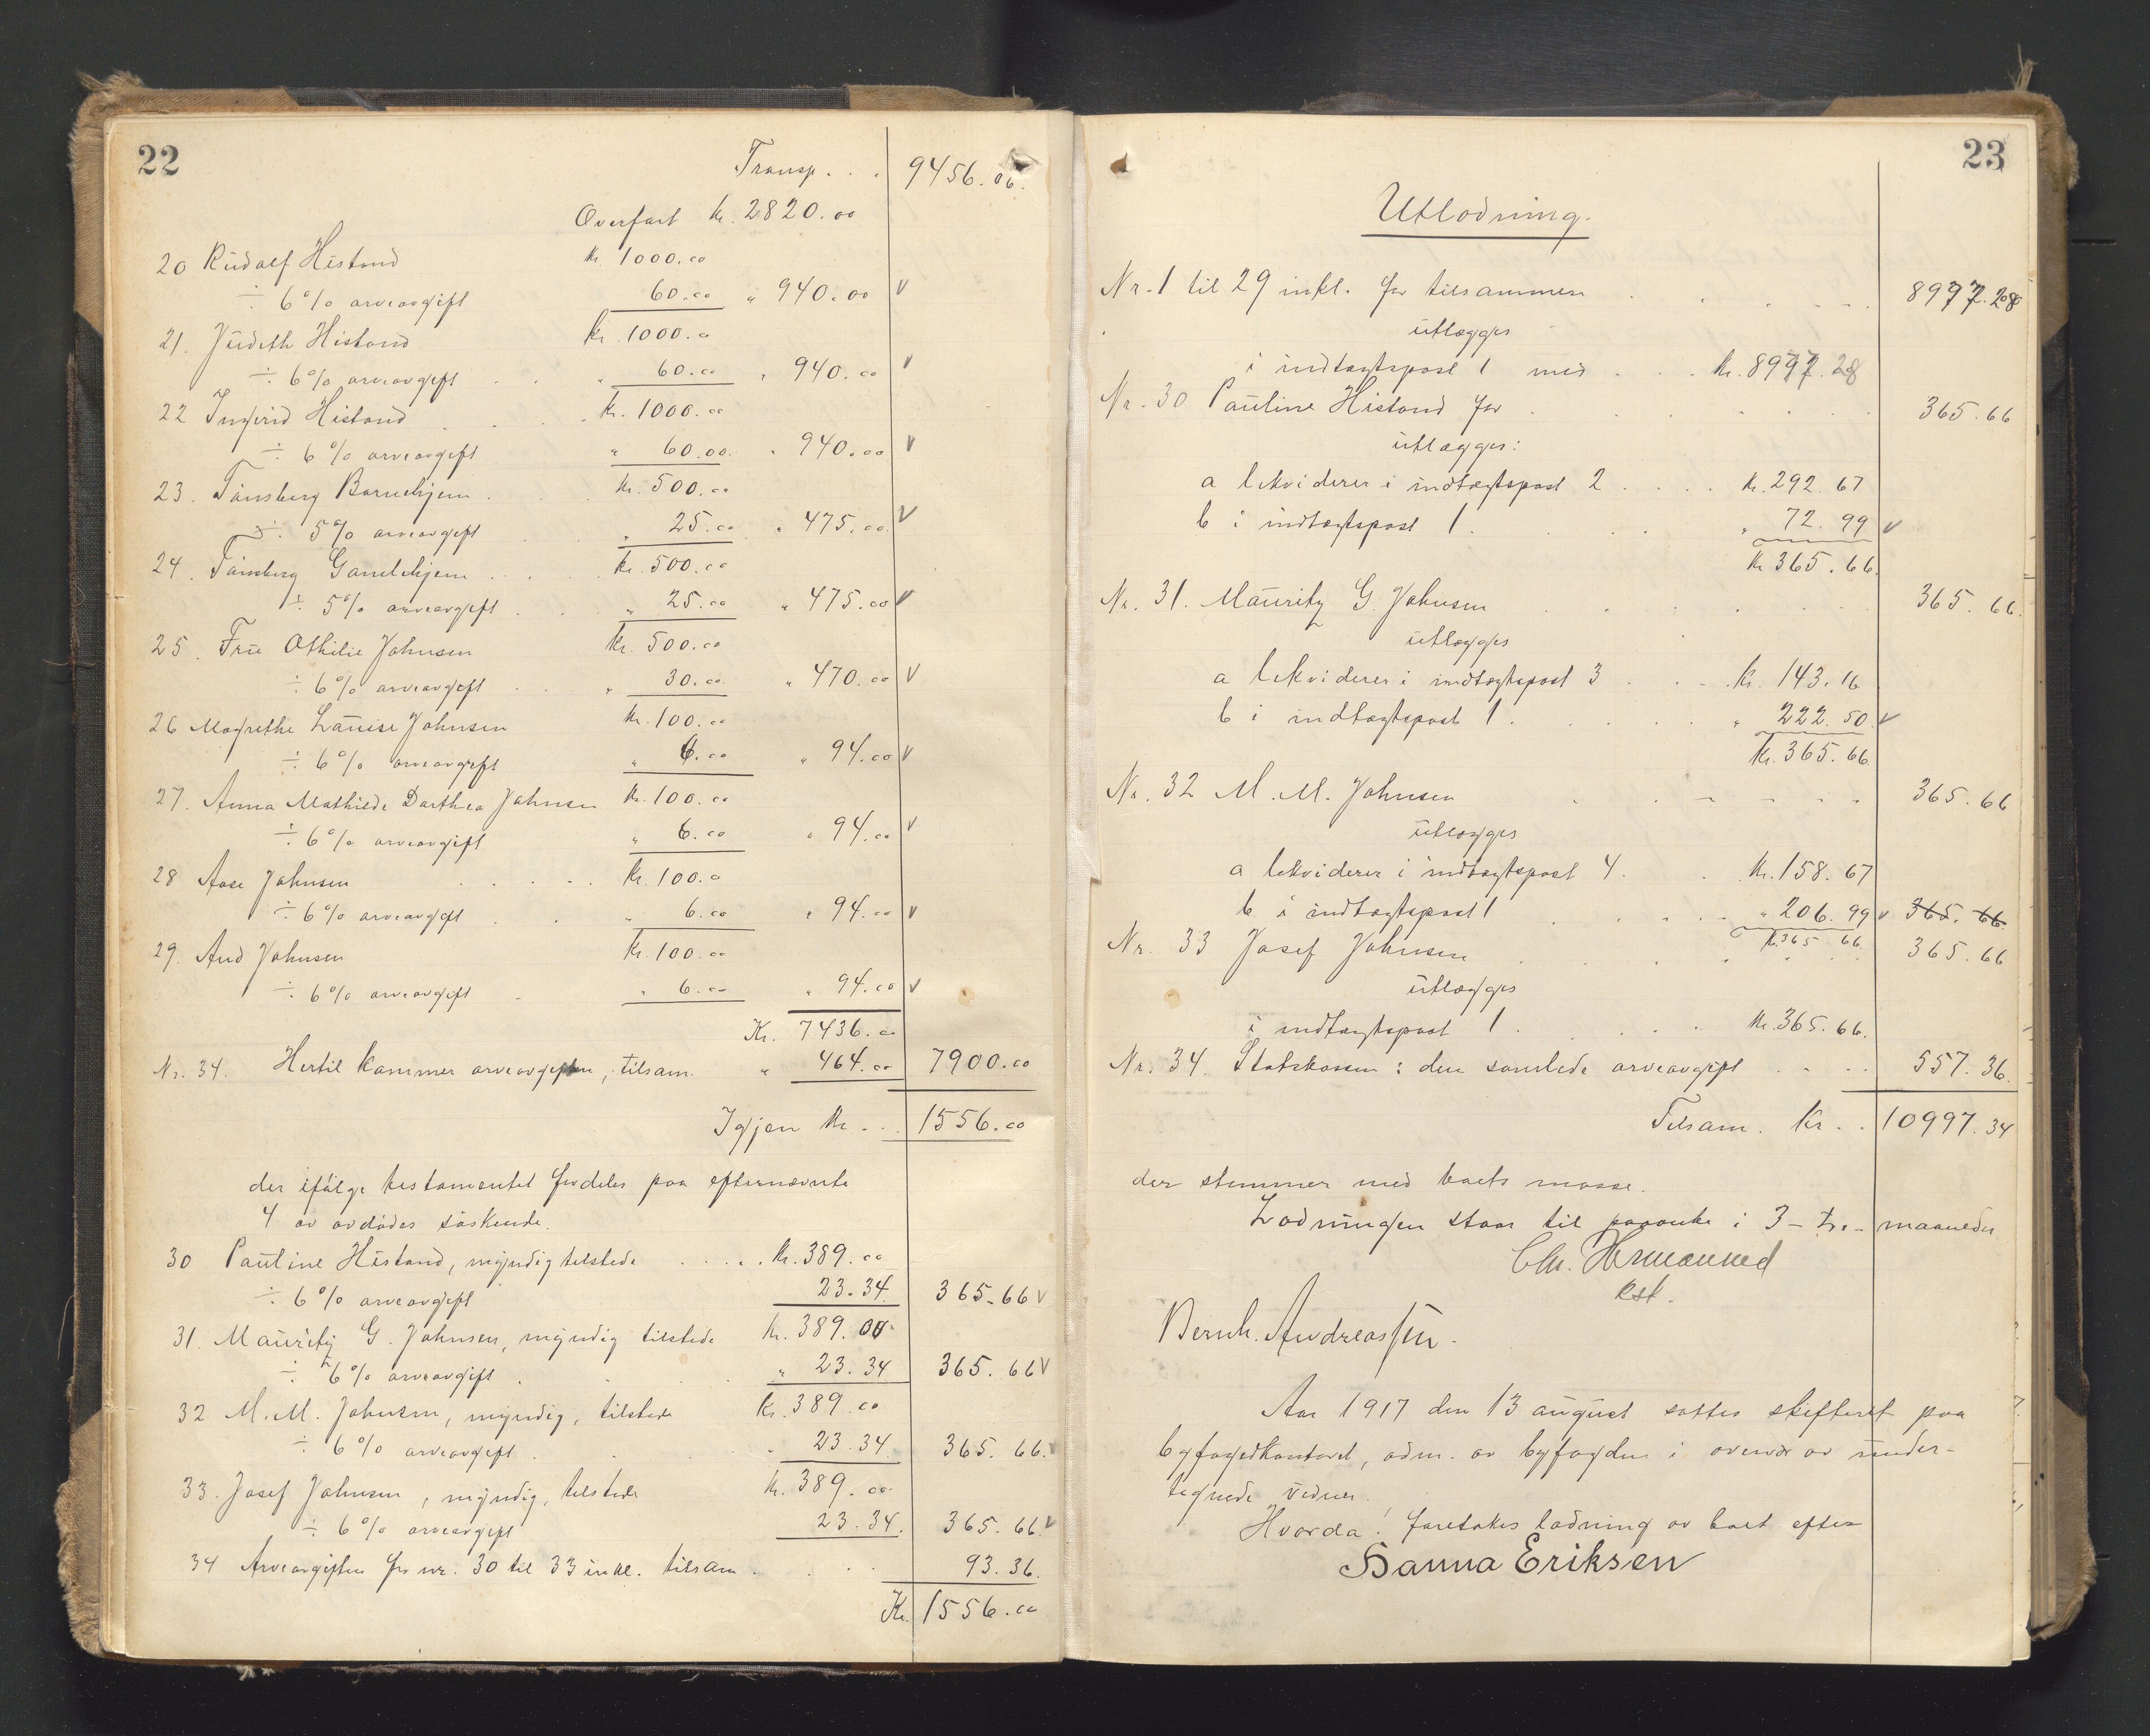 22
Transp. . . 9456.06.
Overført kr. 2820.00
20 Rudolf Histand kr. 1000.00
÷ 6% arveavgift 60.00 " 940.00 V
21. Judith Histand kr. 1000.00
÷ 6% arveavgift . . " 60.00 " 940.00 V
22 Ingrid Histand . . . . kr. 1000.00
÷ 6% arveavgift " 60.00. " 940.00 V
23. Tønsberg Barnehjem . . . kr. 500.00
÷ 5% arveavgift . . " 25.00 " 475.00 V
24. Tønsberg Gamlehjem . . . . kr. 500.00
÷ 5% arveavgift . . " 25.00 " 475.00 V
25. Frue Othilie Johnsen kr. 500.00
÷ 6% arveavgift . . " 30.00 " 470.00 V
26 Magrethe Louise Johnsen kr. 100.00
÷ 6% arveavgift " 6.00 " 94.00 V
27. Anna Mathilde Dorthea Johnsen kr. 100.00
÷ 6% arveavgift " 6.00 " 94.00 V
28 Aase Johnsen . . . . . kr. 100.00
÷ 6% arveavgift . . " 6.00 " 94.00 V
29. Aud Johnsen kr. 100.00
÷ 6% arveavgift . " 6.00 " 94.00 V
Kr. 7436.00
Nr. 34. Hertil kommer arveavgiften, tilsam. " 464.00 7900.00
Igjen kr. . . 1556.00
der ifølge testamentet fordeles paa efternævnte
4 av avdødes søskende.
30 Pauline Histand, myndig tilstede . . . . kr. 389.00
÷ 6% arveavgift 23.34 365.66 V
31. Mauritz G. Johnsen, myndig tilstede kr. 389.00
÷ 6% arveavgift . . . " 23.34 365.66 V
32. M. M. Johnsen, myndig, tilstede kr. 389.00
÷ 6% arveavgift . . " 23.34 365.66. V
33. Josef Johnsen, myndig, tilstede kr. 389.00
÷ 6% arveavgift 23.34. 365.66. V
34 Arveavgiften for nr. 30 til 33 inkl. tilsam . . . . 93.36.
Kr. 1556.00
23
Utlodning.
Nr. 1 til 29 inkl. for tilsammen . . . . . . 8977.28
utlægges
i indtægtspost 1 med . . . kr. 8977.28
Nr. 30 Pauline Histand for . . . . . . 365.66
utlægges:
a likviderer i indtægtspost 2 . . . . kr. 292.67
b i indtægtspost 1 . . . . " 72.99 V
Kr 365.66.
Nr. 31. Mauritz G. Johnsen . . . . . . 365.66.
utlægges
a likviderer i indtægtspost 3 . . . kr. 143.16
b i indtægtspost 1 . . . . " 222.50. V
Kr. 365.66.
Nr. 32 M. M. Johnsen . . . . . . 365.66
utlægges
a likviderer i indtægtspost 4. . . kr. 158.67
b i indtægtspost 1 . . . . " 206.99 V 365.66.
Kr. 365.66.
Nr. 33 Josef Johnsen . . . . . . 365.66
utlægges
i indtægtspost 1 . . . . kr. 365.66.
Nr. 34. Statskassen: den samlede arveavgift . . . . 557.36.
Tilsam. Kr. . . 10997.34
der stemmer med boets masse.
Lodningen staar til paaanke i 3 - tre - maaneder
Chr. Hermansen
kst.
Bernh. Andreassen.
Aar 1917 den 13 august sattes skifteret paa
byfogedkontoret, adm. av byfogden i overvær av under-
tegnede vidner.
Hvorda! foretokes lodning av boet efter
Hanna Eriksen